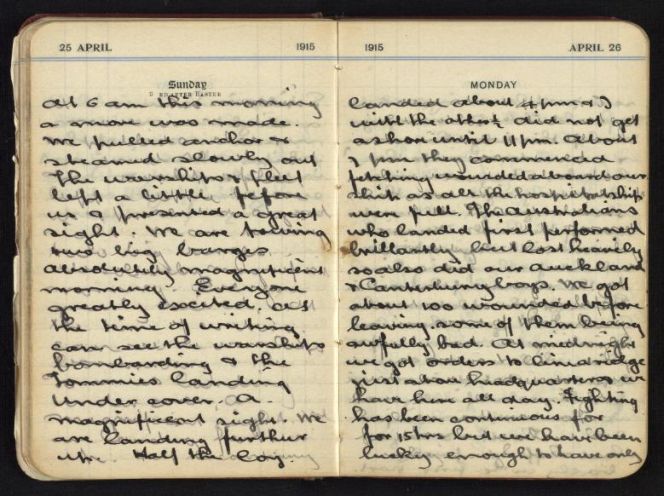 25 APRIL 1915
Sunday
AFTER EASTER
At 6 am this morning
a move was made.
We pulled anchor &
steamed slowly out
The warships & fleet
left a little before
us & presented a great
sight. We are towing
two big barges.
Absolutely magnificent
morning. Everyone
greatly excited. At
the time of writing
can see the warships
bombarding & the
Tommies landing
under cover. A
magnificent sight. We
are landing further
up. Half the Coy.
1915 APRIL 26
MONDAY
landed about 4 pm & I
with the others did not get
ashore until 11 pm. About
7 pm they commenced
fetching wounded aboard our
ship as all the hospital ships
were full. The Australians
who landed first performed
brilliantly but lost heavily
so also did our Auckland
& Canterbury boys. We got
about 100 wounded before
leaving some of them being
awfully bad. At midnight
we got orders to line ridge
just above headquarters we
have been all day. Fighting
has been continuous for
for 15 hrs but we have been
lucky enough to have only